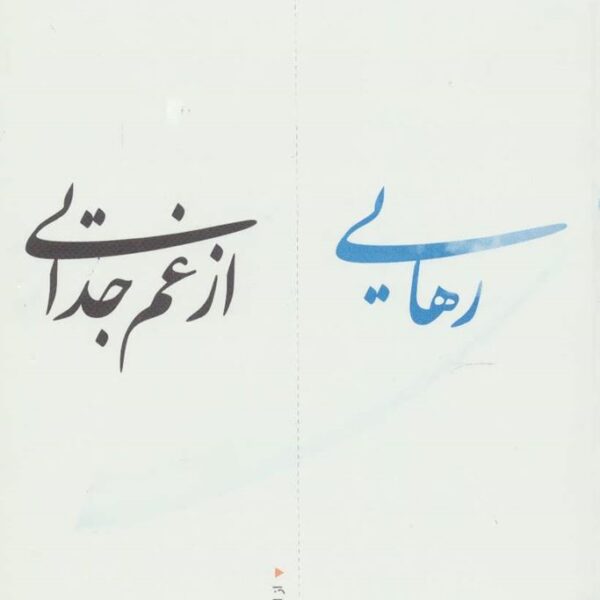 رهایی
از غم جدایی